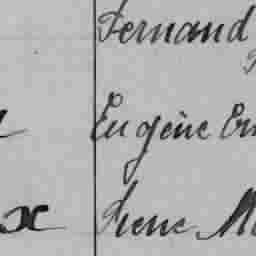 Fernand
Eugène Er
x Irene M